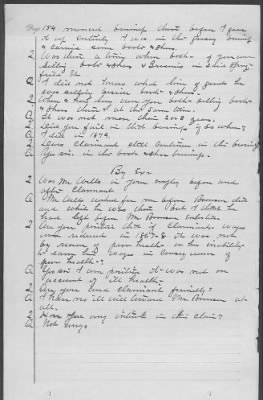 Dep 154 moved business there before 7 years
it my entirely I was in the grocery business
& carried some boots & shoes.
Q Was there a time when both of you were
selling boots & shoes & Groceries in this Spring-
field Ills
A I did not know which line of goods he
was selling groceries boots & shoes.
Q When & how long were you both selling boots
& shoes there at the same time.
A It was not more than 2 or 3 years.
Q Did you fail in that business if so when?
A I did in 1874.
Q Does Claimant still continue in this business
A Yes sir. in the boot & shoe business.
By Exr
Q Was Mr Wells in your employ before and
after Claimant
A Mr Wells worked for me before Bowman did
and while he was there. I think
had left before Mr Bowman enlisted.
Q Are you positive that if Claimants wages
was reduced in 1867-8 it was not
by reason of poor health or his inability
to earn full wages in consequence of
poor health?
A Yes sir I am positive it was not on
account of ill health.
Q Are you and claimant friendly?
A I have no ill will toward Mr Bowman at
all.
Q Have you any interest in this claim?
A Not any.